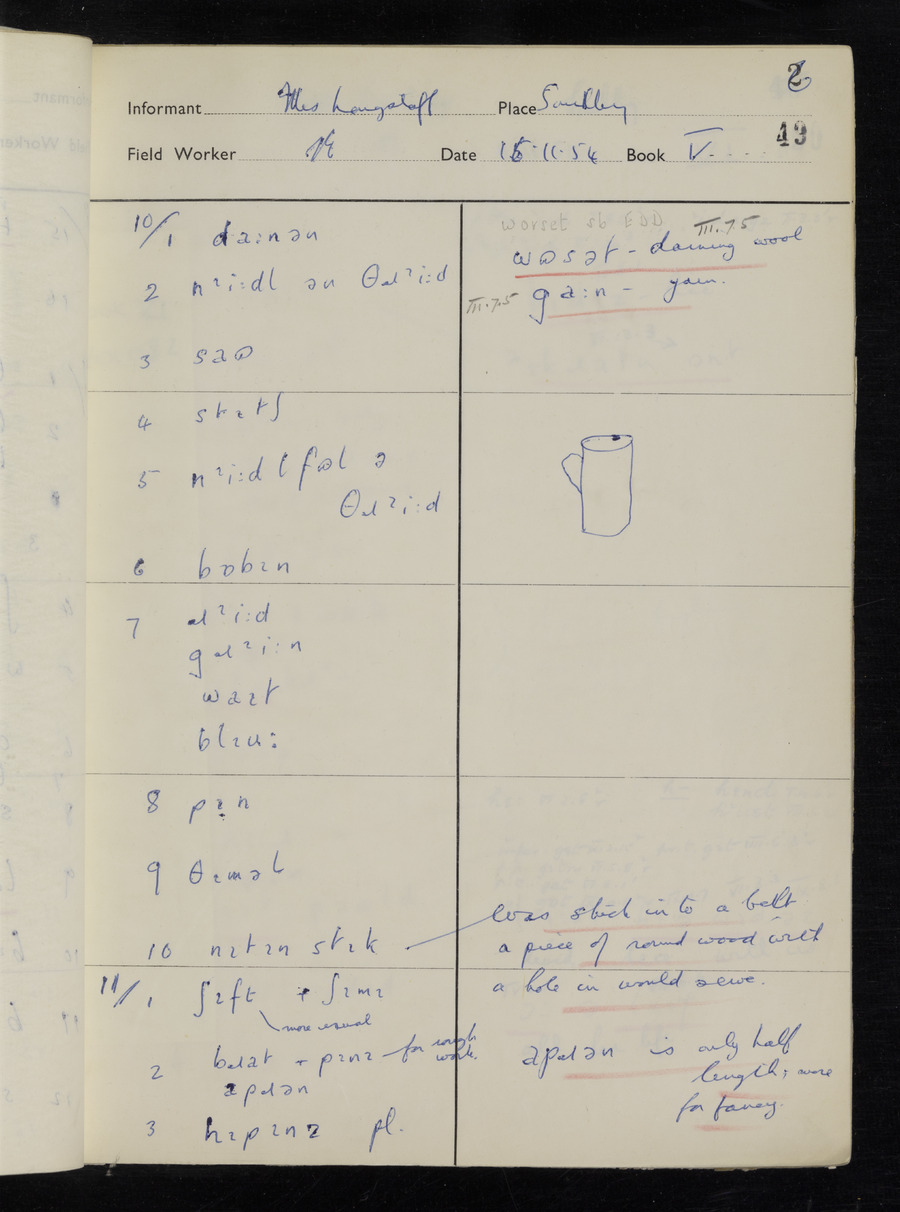 2
Informant Mrs Longstaff Place Soulby
43
Field Worker Date 15·11·54 Book V.
10/1 da:nən
2 nˀi:dl ən θɹˀi:d
3 saʊ
4 stɪtʃ
5 nˀi:dlfʊl ə
θɹˀi:d
6 bɒbɪn
7 ɹˀi:d
gɹˀi:n
waɪt
blɪu:
8 pɪn
9 θɪməl
10 nɪtɪn stɪk
11/1 ʃɪft + ʃɪmɪ
more usual
2 bɹat + pɪnɪ – for rough
work.
apɹən
3 hɪpɪnz pl.
worset sb EDD
III.7.5
wʊsət – darning wool
III.7.5
ga:n – yarn.
was stuck in to a belt
a piece of round wood with
a hole in would serve.
apɹən is only half
length; more
for fancy.